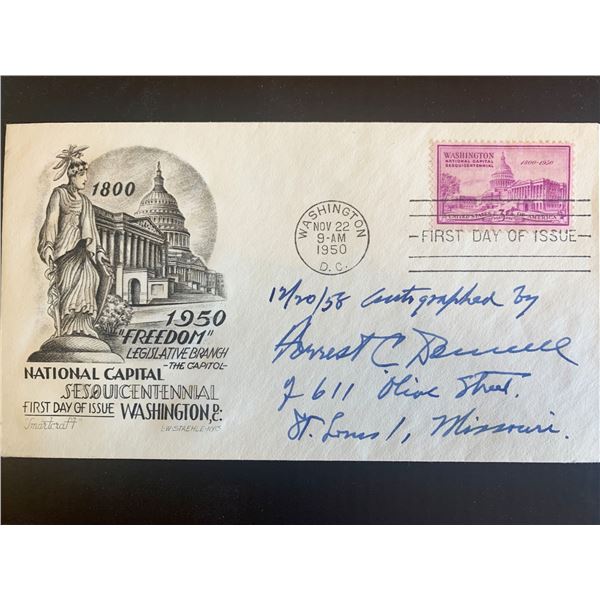 1800
1950
"FREEDOM"
LEGISLATIVE BRANCH
-THE CAPITOL-
NATIONAL CAPITAL
SESQUICENTENNIAL
FIRST DAY OF ISSUE WASHINGTON, D.C.
Smartcraft
L.W. STAEHLE-NYC
WASHINGTON
NATIONAL CAPITAL
SESQUICENTENNIAL
1800-1950
UNITED STATES 3¢ OF AMERICA
WASHINGTON
NOV 22
9-AM
1950
D. C.
FIRST DAY OF ISSUE
12/20/58 Autographed by
Forrest C Donnell
611 Olive Street.
St. Louis 1, Missouri.